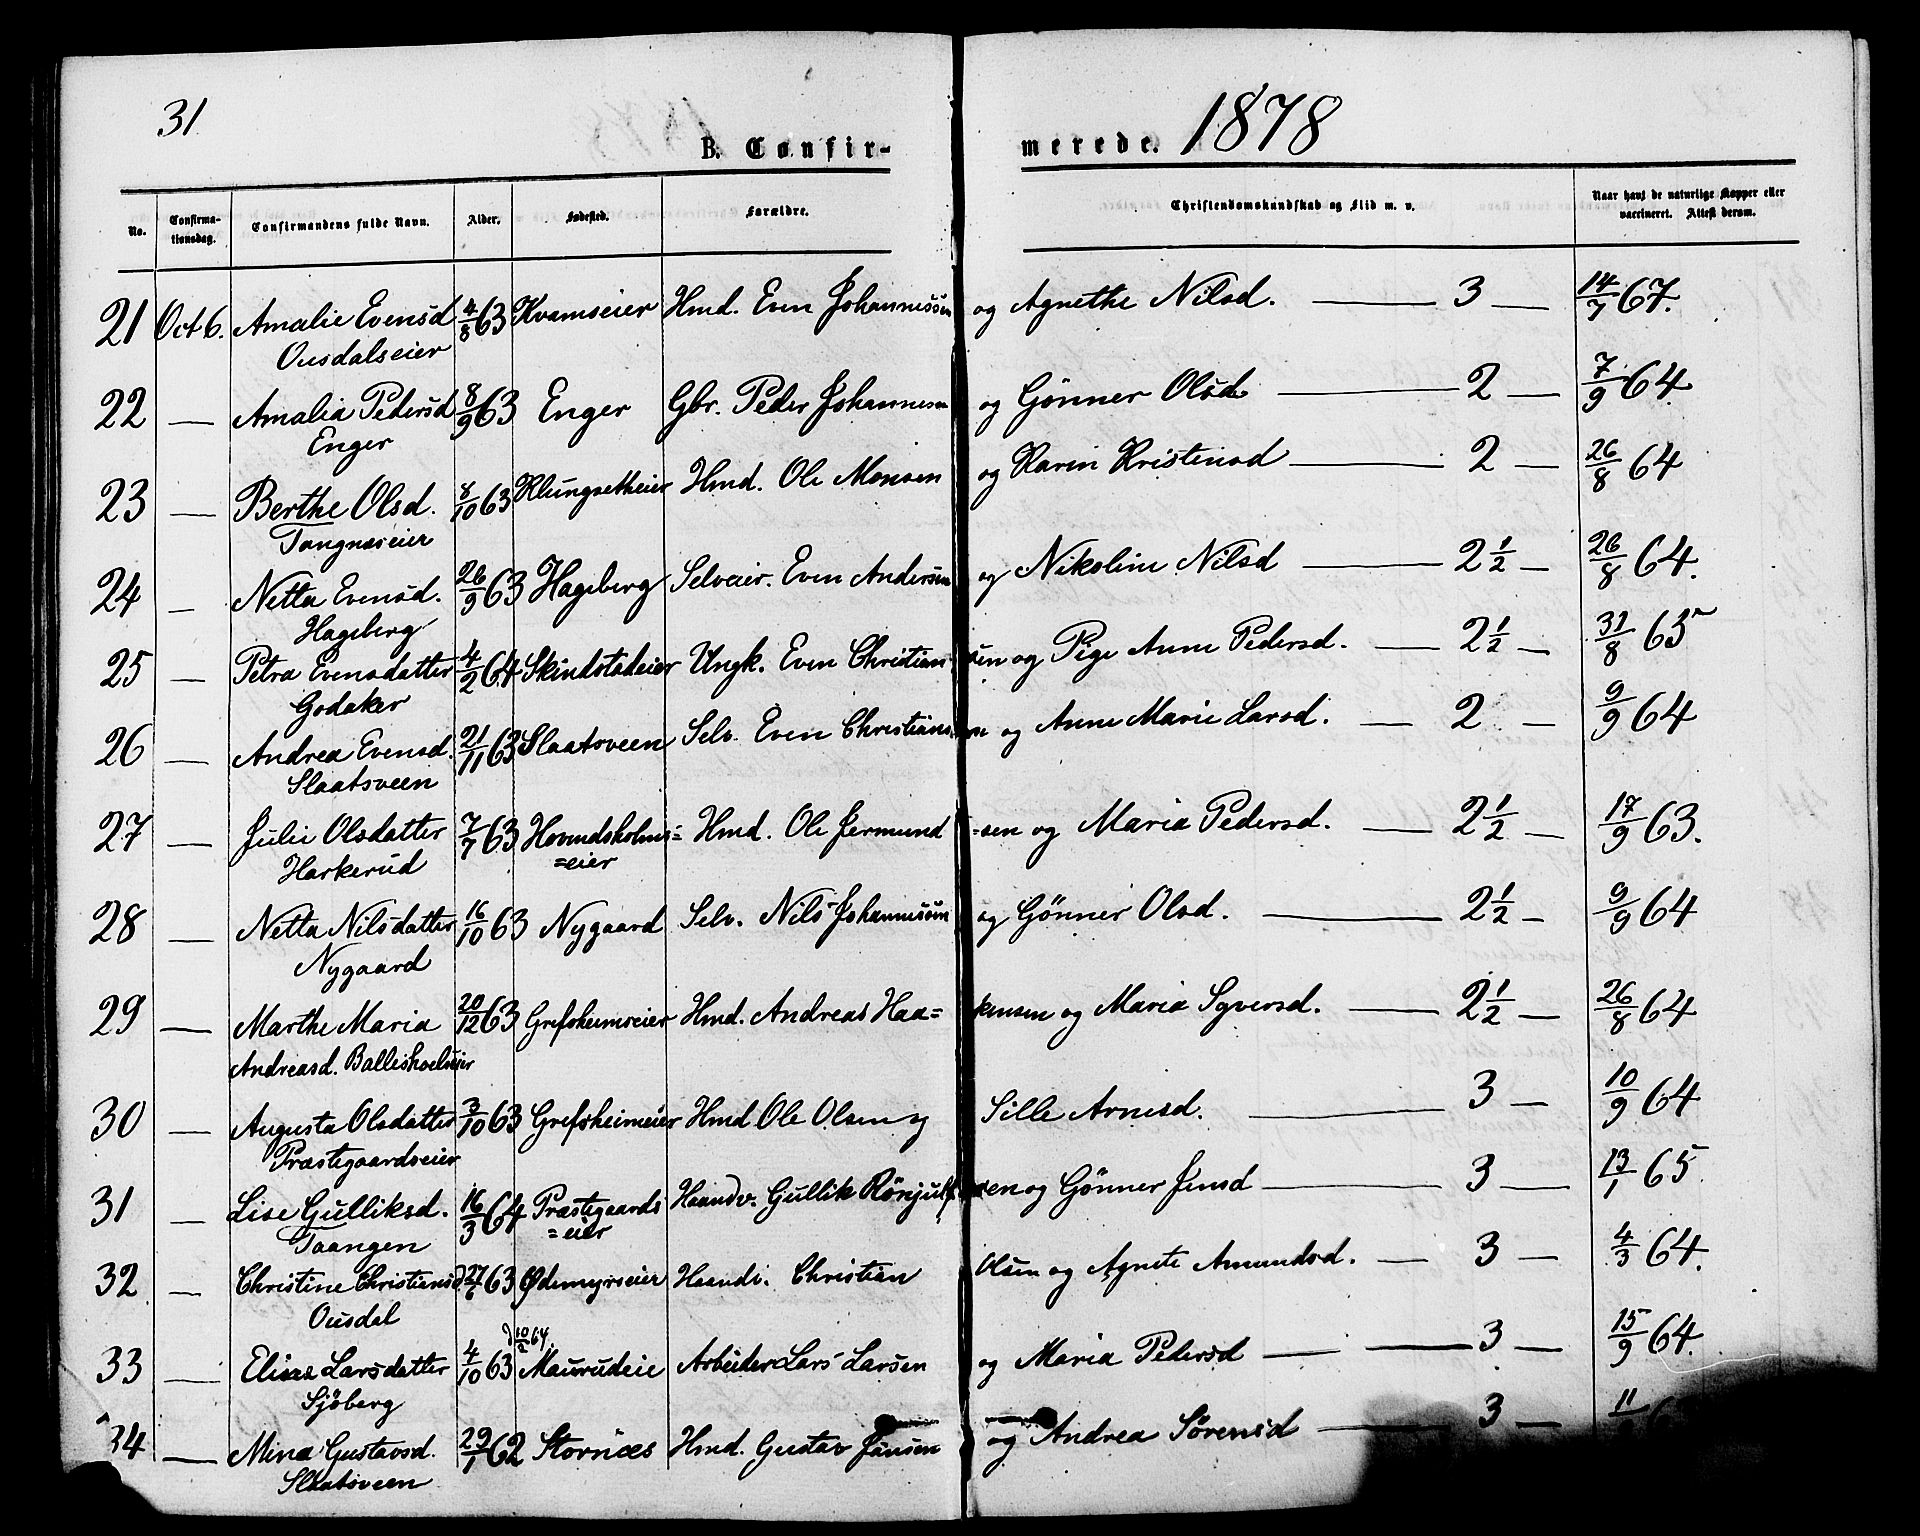 31
B. Confir- merede. 1878
No. Confirma-tionsdag. Confirmandens fulde Navn. Alder. Fødested. Forældre. Christendomskundskab og Flid m. v. Naar havt de naturlige Kopper eller vaccineret. Attest derom.
21 Oct 6. Amalie Evensd 4/8 63 Kvamseier Hmd. Even Johannessen og Agnethe Nilsd. — 3 — 14/7 67.
Ousdalseier
22 — Amalia Pedersd 8/9 63 Enger Gbr. Peder Johannesen og Gönner Olsd — 2 — 7/9 64.
Enger
23 — Berthe Olsd. 8/10 63 Klungsetheier Hmd. Ole Monsen og Karen Kristensd — 2 — 26/8 64
Tangnæseier
24 — Netta Evensd. 26/9 63 Hageberg Selveier. Even Andersen og Nikoline Nilsd — 2 1/2 — 26/8 64.
Hageberg
25 — Petra Evensdatter 4/2 64 Skindstadeier Ungk. Even Christiansen og Pige Anne Pedersd. — 2 1/2 — 31/8 65
Godaker
26 — Andrea Evensd. 21/11 63 Slaatsveen Selv. Even Christiansen og Anne Marie Larsd. — 2 — 9/9 64
Slaatsveen
27 — Julie Olsdatter 7/7 63 Hovindsholms= Hmd. Ole Jermund=sen og Maria Pedersd. — 2 1/2 — 17/9 63.
Harkerud =eier
28 — Netta Nilsdatter 16/10 63 Nygaard Selv. Nils Johannessen og Gönner Olsd. — 2 1/2 — 9/9 64
Nygaard
29 — Marthe Maria 20/12 63 Grefsheimseier Hmd. Andreas Haa=kensen og Maria Syversd. — 2 1/2 — 26/8 64
Andreasd. Ballishoelseier
30 — Augusta Olsdatter 3/10 63 Grefsheimeier Hmd Ole Olsen og Sille Arnesd. — 3 — 10/9 64
Præstegaardseier
31 — Lise Gulliksd. 16/3 64 Præstegaards Haandv. Gullik Rönjulfsen og Gönner Jensd — 3 — 13/1 65
Taangen =eier
32 — Christine Christiansd 27/6 63 Ødemyrseier Haandv. Christian Olsen og Agnete Amundsd. — 3 — 4/3 64.
Ousdal
d 10/2 64
33 — Elise Larsdatter 4/10 63 Maurudeie Arbeider Lars Larsen og Maria Pedersd — 3 — 15/9 64.
Sjöberg
34 — Mina Gustavsd. 29/1 62 Stornæs Hmd. Gustav Jansen og Andrea Sörensd — 3 — 11
Slaatsveen